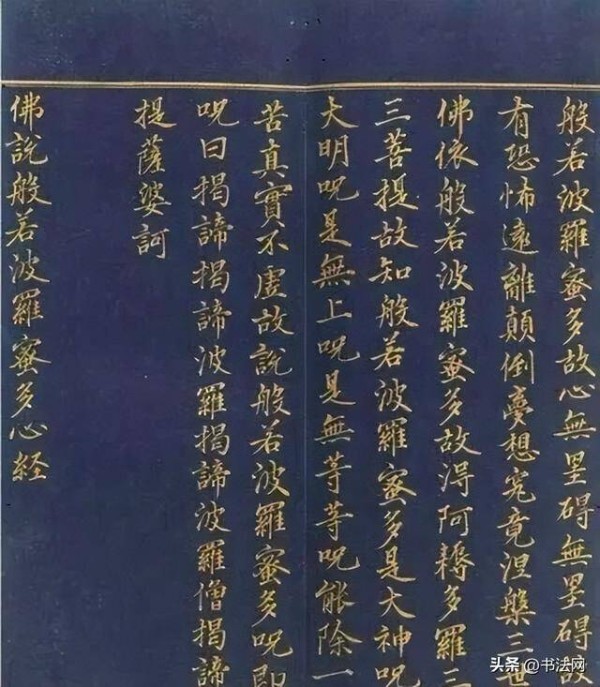 般若波羅蜜多故心無罣礙無罣礙故
有恐怖遠離顛倒夢想究竟涅槃三世
佛依般若波羅蜜多故得阿耨多羅三
三菩提故知般若波羅蜜多是大神呪
大明呪是無上呪是無等等呪能除一
苦真實不虛故說般若波羅蜜多呪即
呪曰揭諦揭諦波羅揭諦波羅僧揭諦
提薩婆訶
佛說般若波羅蜜多心経
头条 @书法网